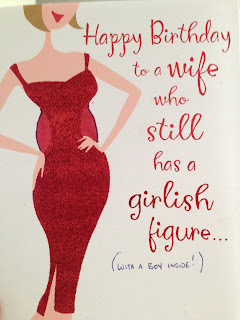 Happy Birthday
to a wife
who
still
has a
girlish
figure...
(WITH A BOY INSIDE!)